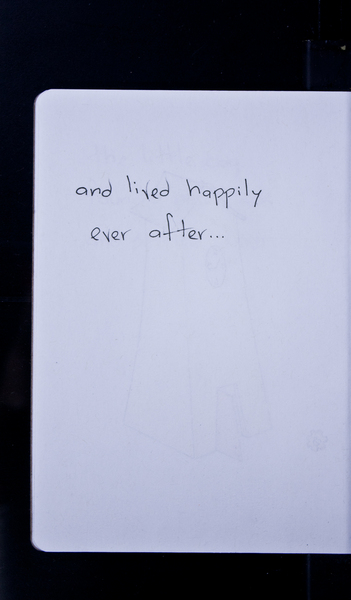 and lived happily
ever after...